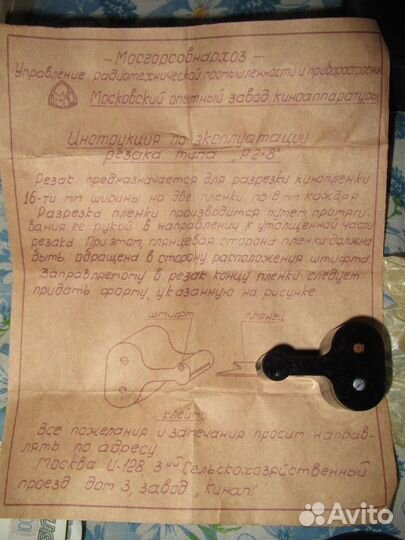 — Мосгорсовнархоз —
Управление радиотехнической промышленности и приборостроения
Московский опытный завод киноаппаратуры
Инструкция по эксплуатации
резака типа „Р2×8"
Резак предназначается для разрезки кинопленки
16-ти мм ширины на две пленки по 8 мм каждая
Разрезка пленки производится путем протяги-
вания ее рукой в направлении к утолщенной части
резака. При этом, глянцевая сторона пленки должна
быть обращена в сторону расположения штифта.
Заправляемому в резак концу пленки следует
придать форму, указанную на рисунке
штифт
глянец
клеймо
Все пожелания и замечания просим направ-
лять по адресу:
Москва И-128 3ий Сельскохозяйственный
проезд дом 3, завод „Кинап"
Avito